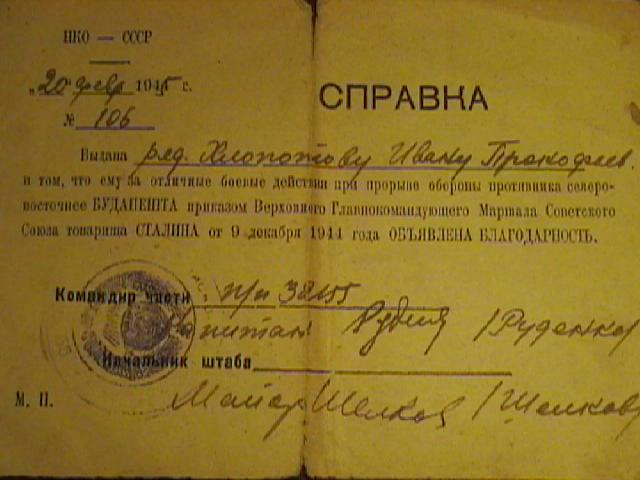 НКО — СССР
„20" февр 1945 г.
СПРАВКА
№ 106
Выдана ряд. Хлопотову Ивану Прокофьев.
в том, что ему за отличные боевые действия при прорыве обороны противника северо-
восточнее БУДАПЕШТА приказом Верховного Главнокомандующего Маршала Советского
Союза товарища СТАЛИНА от 9 декабря 1944 года ОБЪЯВЛЕНА БЛАГОДАРНОСТЬ.
Командир части п/п 38155
Капитан /Руденко/
Начальник штаба
М. П. Майор Шелков /Шелков/